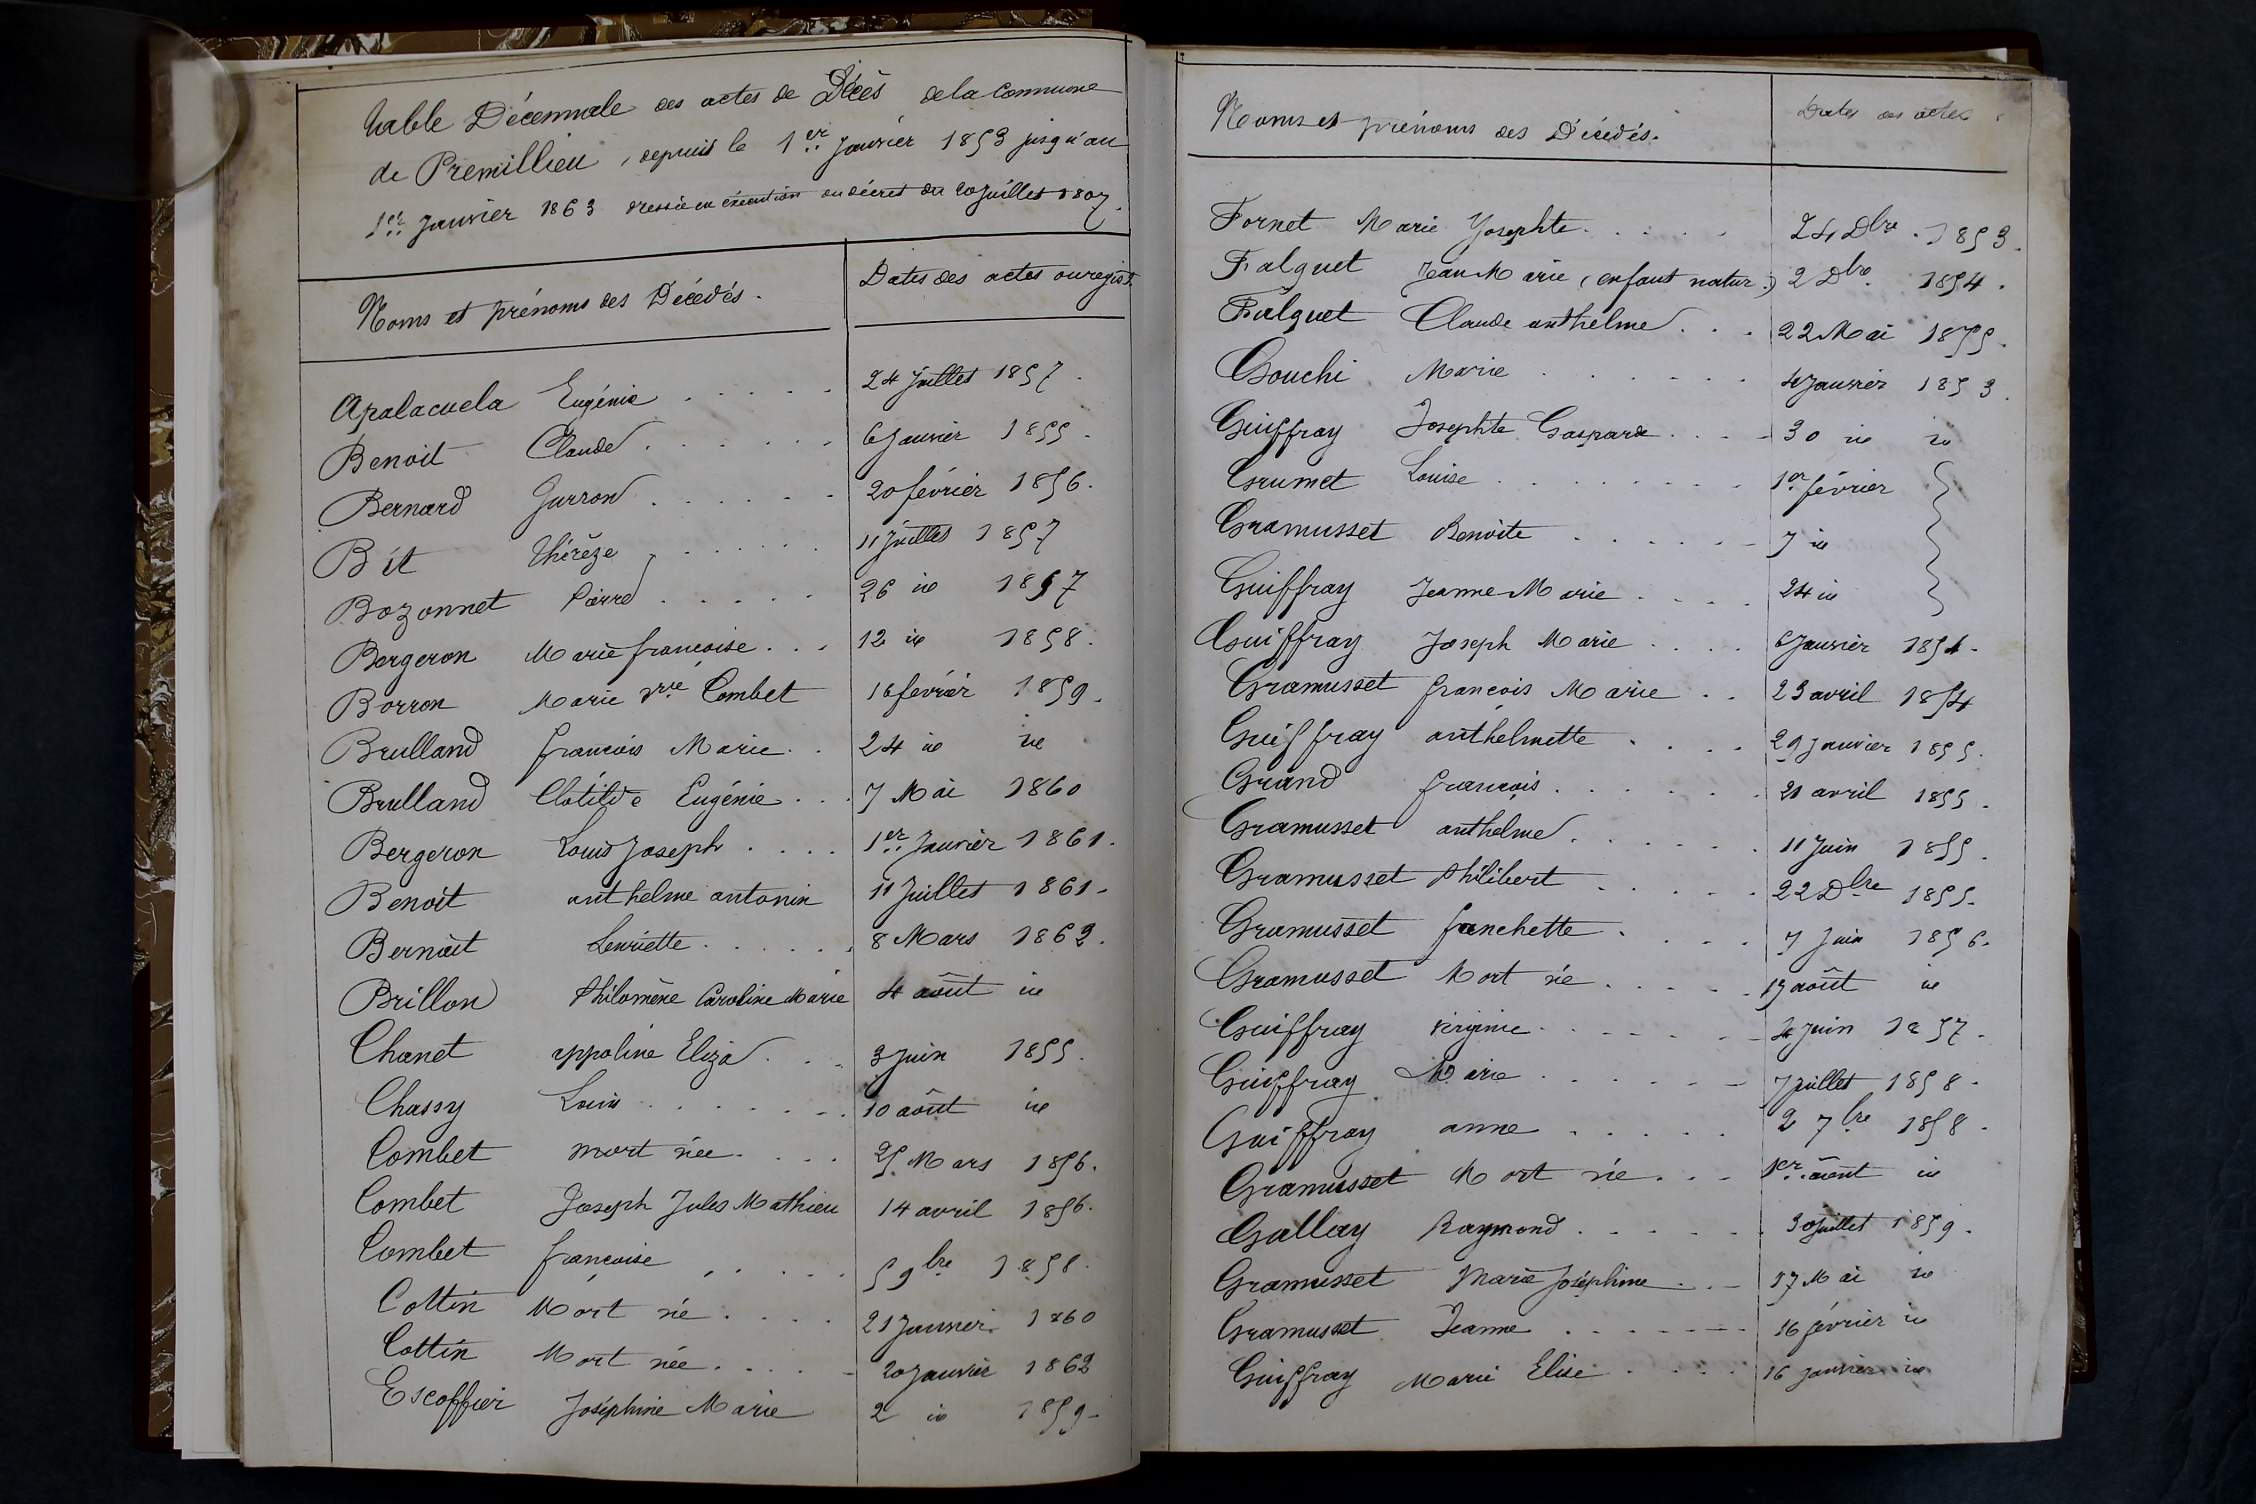 Table Décennale des actes de Décès de la Commune
de Premillieu, depuis le 1er Janvier 1853 jusqu'au
1er Janvier 1863 dressée en exécution du décret du 20 Juillet 1807.
Noms et prénoms des Décédés. Dates des actes ou regist.
Apalacuela Eugénie 24 Juillet 1857.
Benoit Claude 6 Janvier 1855.
Bernard Garron 20 février 1856.
Bit Thérèze 11 Juillet 1857
Bozonnet Pierre 26 id 1857
Bergeron Marie françoise 12 id 1858.
Borron Marie Combet 16 février 1859.
Brulland françois Marie 24 id id
Brulland Clotilde Eugénie 7 Mai 1860
Bergeron Louis Joseph 1er Janvier 1861.
Benoit anthelme antonin 11 Juillet 1861.
Bernait henriette 8 Mars 1862.
Brillon Philomène Caroline Marie 4 août id
Chanet appoline Eliza 3 Juin 1855.
Chassy Louis 10 août id
Combet mort née 25 Mars 1856.
Combet Joseph Jules Mathieu 14 avril 1856.
Combet françoise 5 9bre 1858.
Cottin Mort né 21 Janvier 1860
Cottin Mort née 20 Janvier 1862
Escoffier Joséphine Marie 2 id 1859.
Noms et prénoms des Décédés. Dates des actes
Fornet Marie Josephte 24 Dbre. 1853.
Falguet Jean Marie (enfant natur.) 2 Dbre. 1854.
Falguet Claude anthelme 22 Mai 1855.
Gouchi Marie 4 Janvier 1853.
Guiffray Josephte Gasparde 30 id id
Grumet Louise 1er février
Gramusset Benoite 7 id
Guiffray Jeanne Marie 24 id
Guiffray Joseph Marie 6 Janvier 1854.
Gramusset françois Marie 23 avril 1854
Guiffray anthelmette 29 Janvier 1855.
Grand françois 21 avril 1855.
Gramusset anthelme 11 Juin 1855.
Gramusset Philibert 22 Dbre 1855.
Gramusset fanchette 7 Juin 1856.
Gramusset Mort né 19 août id
Guiffray virginie 4 Juin 1857.
Guiffray Marie 7 juillet 1858.
Guiffray anne 2 7bre 1858.
Gramusset Mort né 1er août id
Gallay Raymond 30 Juillet 1859.
Gramusset Marie Joséphine 17 Mai id
Gramusset Jeanne 16 février id
Guiffray Marie Elise 16 Janvier id